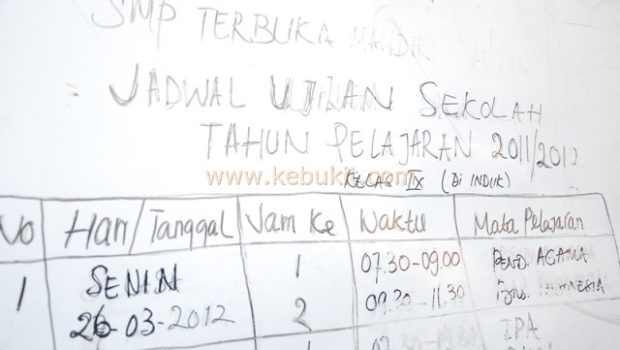 SMP TERBUKA MANDIRI
JADWAL UJIAN SEKOLAH
TAHUN PELAJARAN 2011/2012
www.kebukit.com
KELAS IX (Di INDUK)
No Hari/Tanggal Jam Ke Waktu Mata Pelajaran
1 SENIN 1 07.30-09.00 PEND. AGAMA
26-03-2012 2 09.30-11.30
IPA